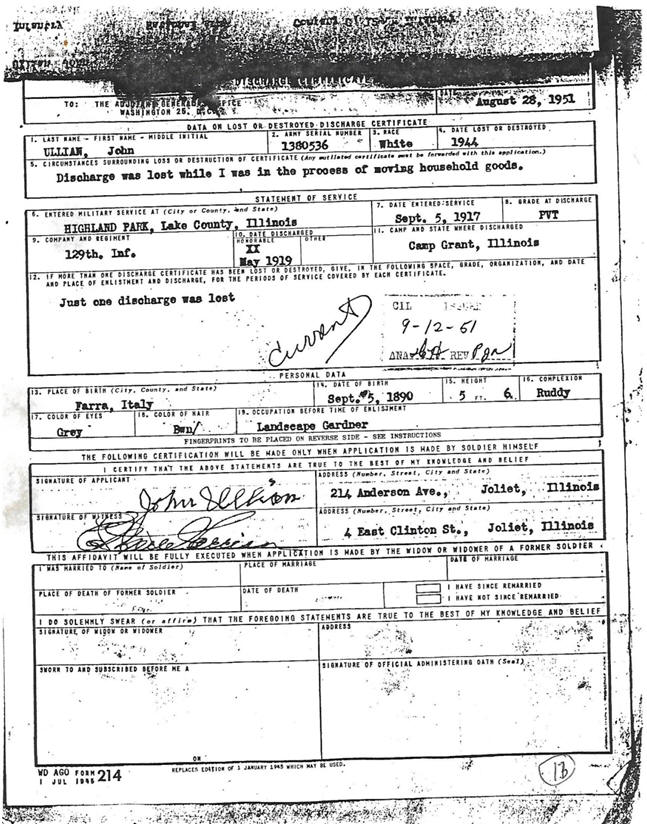 Infantry
DISCHARGE CERTIFICATE
TO: THE ADJUTANT GENERAL'S OFFICE
WASHINGTON 25, D.C.
DATE
August 28, 1951
DATA ON LOST OR DESTROYED DISCHARGE CERTIFICATE
1. LAST NAME - FIRST NAME - MIDDLE INITIAL
ULLIAN, John
2. ARMY SERIAL NUMBER
1380536
3. RACE
White
4. DATE LOST OR DESTROYED
1944
5. CIRCUMSTANCES SURROUNDING LOSS OR DESTRUCTION OF CERTIFICATE (Any mutilated certificate must be forwarded with this application.)
Discharge was lost while I was in the process of moving household goods.
STATEMENT OF SERVICE
6. ENTERED MILITARY SERVICE AT (City or County, and State)
HIGHLAND PARK, Lake County, Illinois
7. DATE ENTERED SERVICE
Sept. 5, 1917
8. GRADE AT DISCHARGE
PVT
9. COMPANY AND REGIMENT
129th. Inf.
10. DATE DISCHARGED
HONORABLE
OTHER
XX
May 1919
11. CAMP AND STATE WHERE DISCHARGED
Camp Grant, Illinois
12. IF MORE THAN ONE DISCHARGE CERTIFICATE HAS BEEN LOST OR DESTROYED, GIVE, IN THE FOLLOWING SPACE, GRADE, ORGANIZATION, AND DATE
AND PLACE OF ENLISTMENT AND DISCHARGE, FOR THE PERIODS OF SERVICE COVERED BY EACH CERTIFICATE.
Just one discharge was lost
Current
CIL
9-12-51
REV
PERSONAL DATA
13. PLACE OF BIRTH (City, County, and State)
Farra, Italy
14. DATE OF BIRTH
Sept. 5, 1890
15. HEIGHT
5 FT. 6
16. COMPLEXION
Ruddy
17. COLOR OF EYES
Grey
18. COLOR OF HAIR
Bwn/
19. OCCUPATION BEFORE TIME OF ENLISTMENT
Landscape Gardner
FINGERPRINTS TO BE PLACED ON REVERSE SIDE - SEE INSTRUCTIONS
THE FOLLOWING CERTIFICATION WILL BE MADE ONLY WHEN APPLICATION IS MADE BY SOLDIER HIMSELF
I CERTIFY THAT THE ABOVE STATEMENTS ARE TRUE TO THE BEST OF MY KNOWLEDGE AND BELIEF
SIGNATURE OF APPLICANT
John Ullian
ADDRESS (Number, Street, City and State)
214 Anderson Ave., Joliet, Illinois
SIGNATURE OF WITNESS
ADDRESS (Number, Street, City and State)
4 East Clinton St., Joliet, Illinois
THIS AFFIDAVIT WILL BE FULLY EXECUTED WHEN APPLICATION IS MADE BY THE WIDOW OR WIDOWER OF A FORMER SOLDIER
I WAS MARRIED TO (Name of Soldier)
PLACE OF MARRIAGE
DATE OF MARRIAGE
PLACE OF DEATH OF FORMER SOLDIER
DATE OF DEATH
I HAVE SINCE REMARRIED
I HAVE NOT SINCE REMARRIED
I DO SOLEMNLY SWEAR (or affirm) THAT THE FOREGOING STATEMENTS ARE TRUE TO THE BEST OF MY KNOWLEDGE AND BELIEF
SIGNATURE OF WIDOW OR WIDOWER
ADDRESS
SWORN TO AND SUBSCRIBED BEFORE ME A
SIGNATURE OF OFFICIAL ADMINISTERING OATH (Seal)
ON
WD AGO FORM 214
1 JUL 1945
REPLACES EDITION OF 1 JANUARY 1945 WHICH MAY BE USED.
13